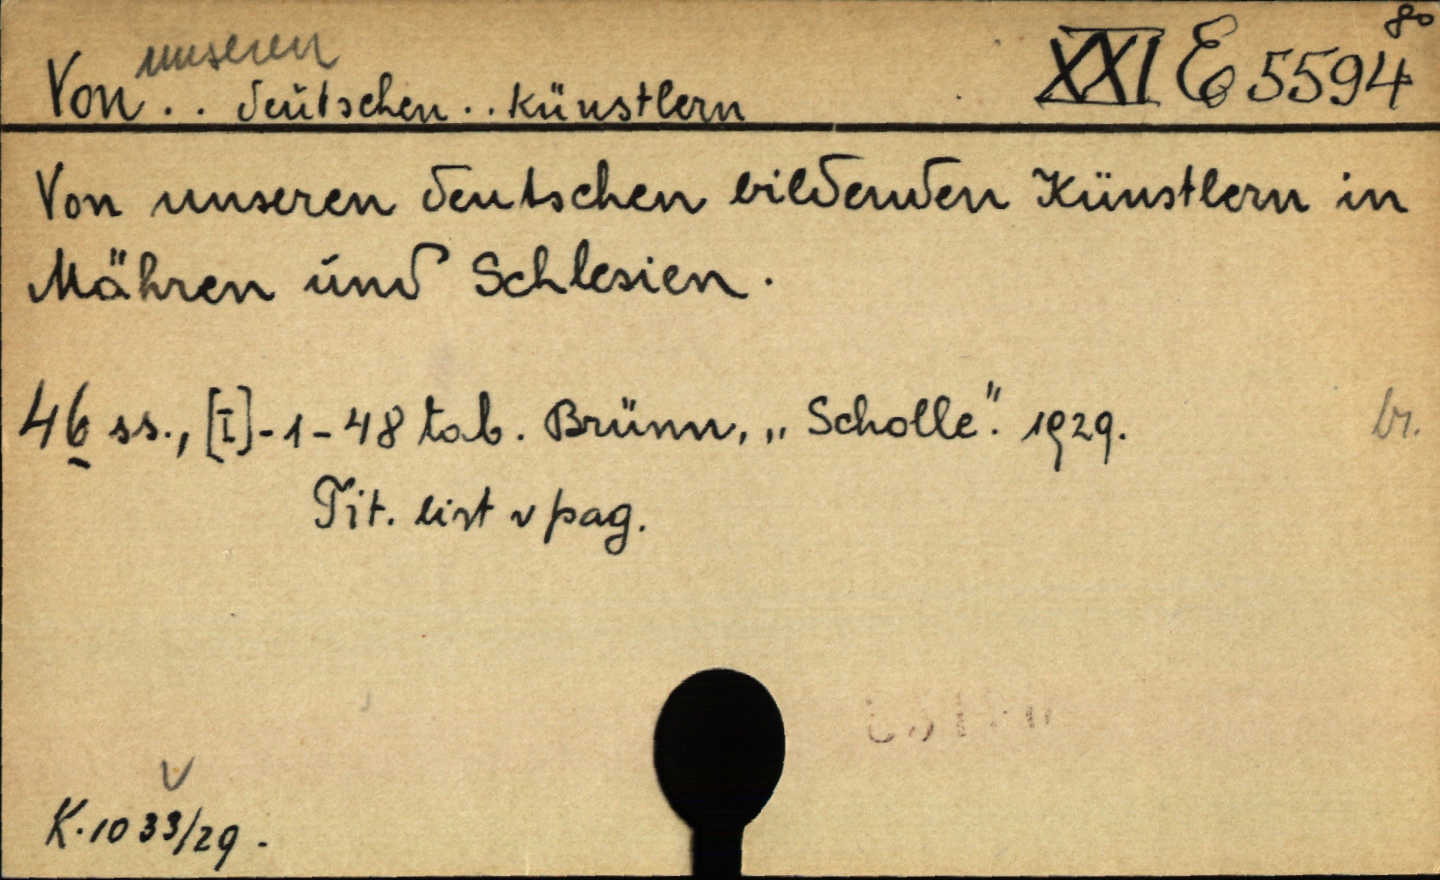 unseren
Von .. deutschen .. Künstlern
XXI E 5594
80
Von unseren deutschen bildenden Künstlern in
Mähren und Schlesien.
46 ss., [I]-1-48 tab. Brünn, „Scholle". 1929.
br.
Tit. list v pag.
K. 1033/29.